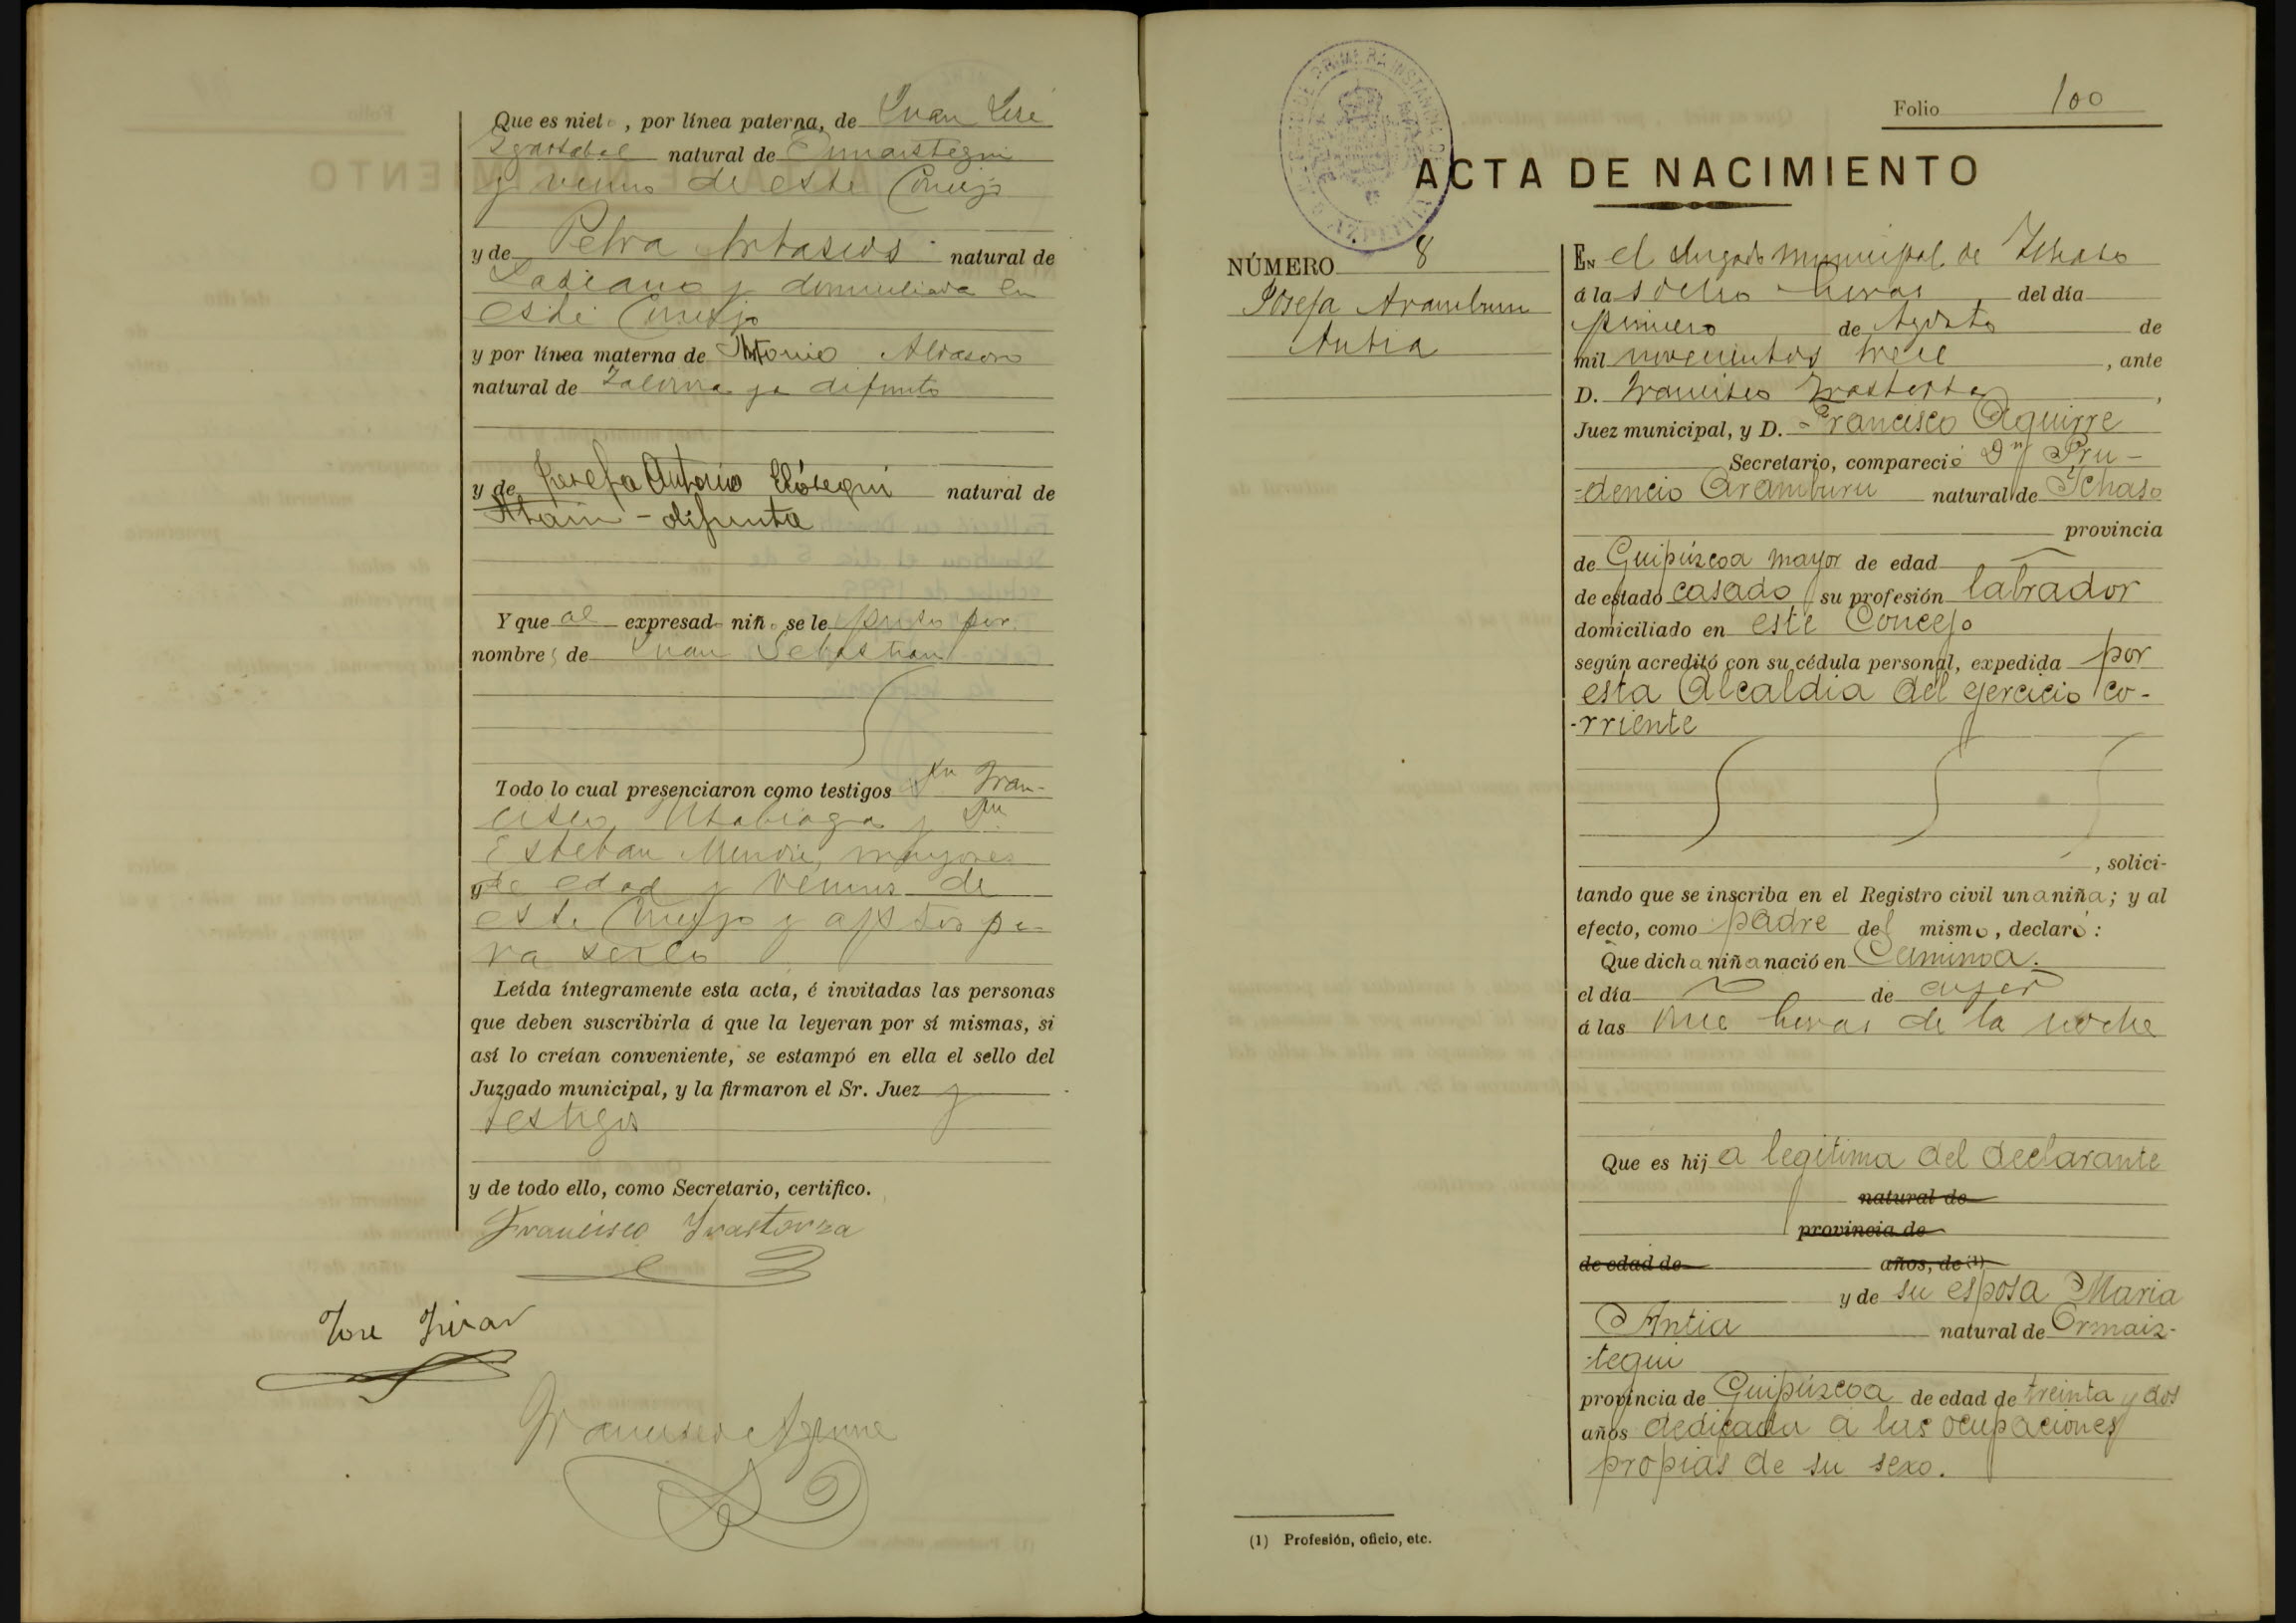 Que es nieto, por línea paterna, de Juan José
Igartabal natural de Ormaiztegui
y vecino de este Concejo
y de Petra natural de
y domiciliada en
este Concejo
y por línea materna de Antonio Aldasoro
natural de Zaldivia ya difunto
y de Josefa Antonia Elósegui natural de
Ataun - difunta
Y que al expresado niño se le puso por
nombres de Juan Sebastian
Todo lo cual presenciaron como testigos Dn Fran-
cisco y Dn
Esteban mayores
de edad y vecinos de
este Concejo y aptos pa-
ra serlo
Leída íntegramente esta acta, é invitadas las personas
que deben suscribirla á que la leyeran por sí mismas, si
así lo creían conveniente, se estampó en ella el sello del
Juzgado municipal, y la firmaron el Sr. Juez y
testigos
y de todo ello, como Secretario, certifico.
Francisco Irastorza
José
Francisco Aguirre
Folio 100
ACTA DE NACIMIENTO
JUZGADO DE PRIMERA INSTANCIA DE AZPEITIA
NÚMERO 8
Josefa Aramburu
Antia
EN el Juzgado municipal de Ichaso
á las ocho horas del día
primero de Agosto de
mil novecientos trece, ante
D. Francisco Irastorza,
Juez municipal, y D. Francisco Aguirre
Secretario, compareció Dn Pru-
-dencio Aramburu natural de Ichaso
provincia
de Guipúzcoa mayor de edad
de estado casado su profesión labrador
domiciliado en este Concejo
según acreditó con su cédula personal, expedida por
esta Alcaldia del ejercicio co-
-rriente
, solici-
tando que se inscriba en el Registro civil una niña; y al
efecto, como padre del mismo, declaró:
Que dicha niña nació en Caminoa.
el día de ayer
á las once horas de la noche
Que es hija legitima del declarante
natural de
provincia de
de edad de años, de (1)
y de su esposa Maria
Antia natural de Ormaiz-
-tegui
provincia de Guipúzcoa de edad de treinta y dos
años dedicada a las ocupaciones
propias de su sexo.
(1) Profesión, oficio, etc.